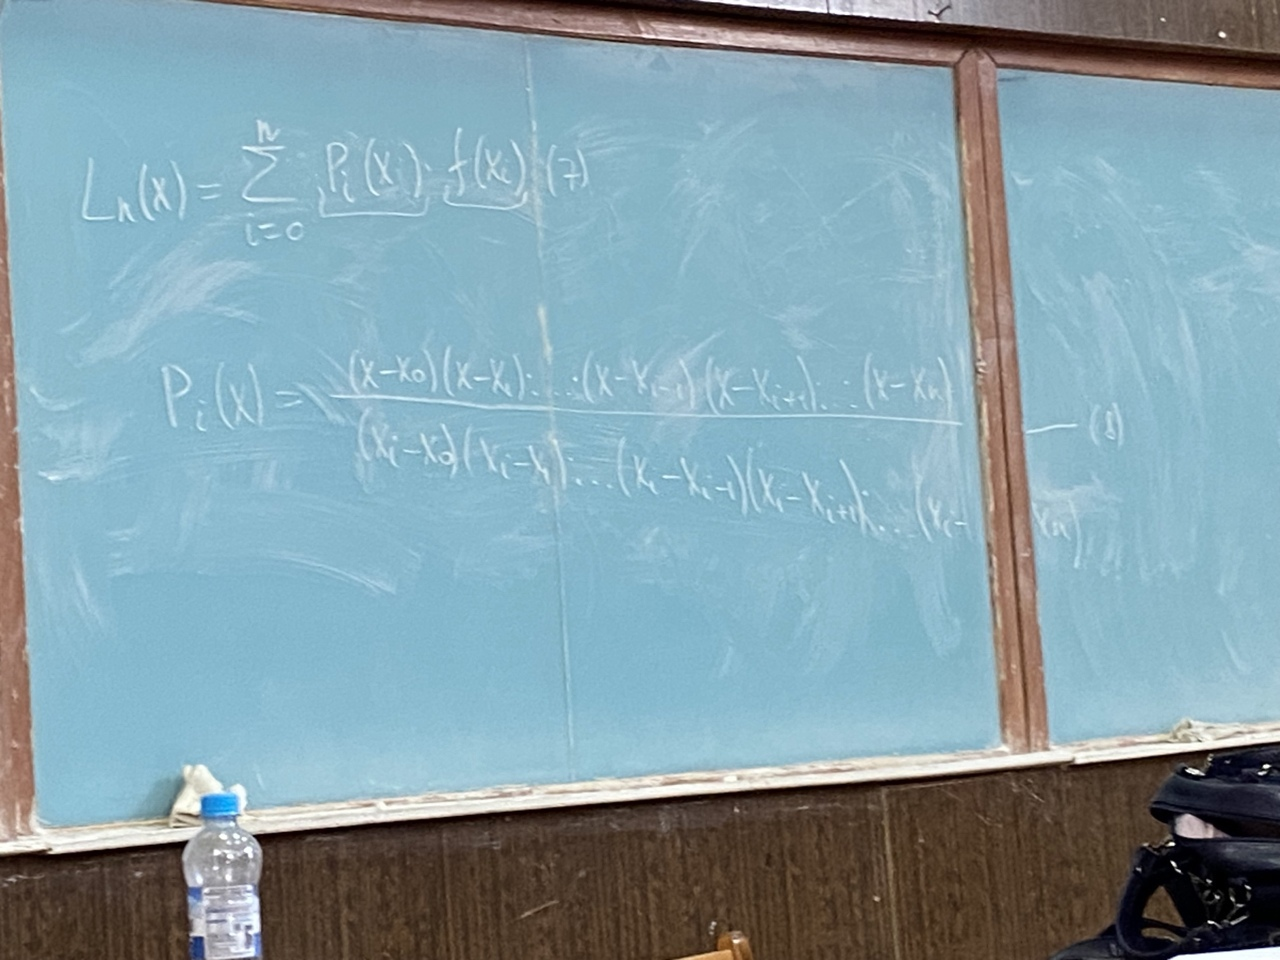 Lₙ(x) = ∑ⁿᵢ₌₀ Pᵢ(xᵢ) · f(xᵢ) (7)
Pᵢ(x) = (x-x₀)(x-x₁)·...·(x-xᵢ₋₁)(x-xᵢ₊₁)·...·(x-xₙ)
(xᵢ-x₀)(xᵢ-x₁)·...·(xᵢ-xᵢ₋₁)(xᵢ-xᵢ₊₁)·...·(xᵢ-xₙ) — (8)